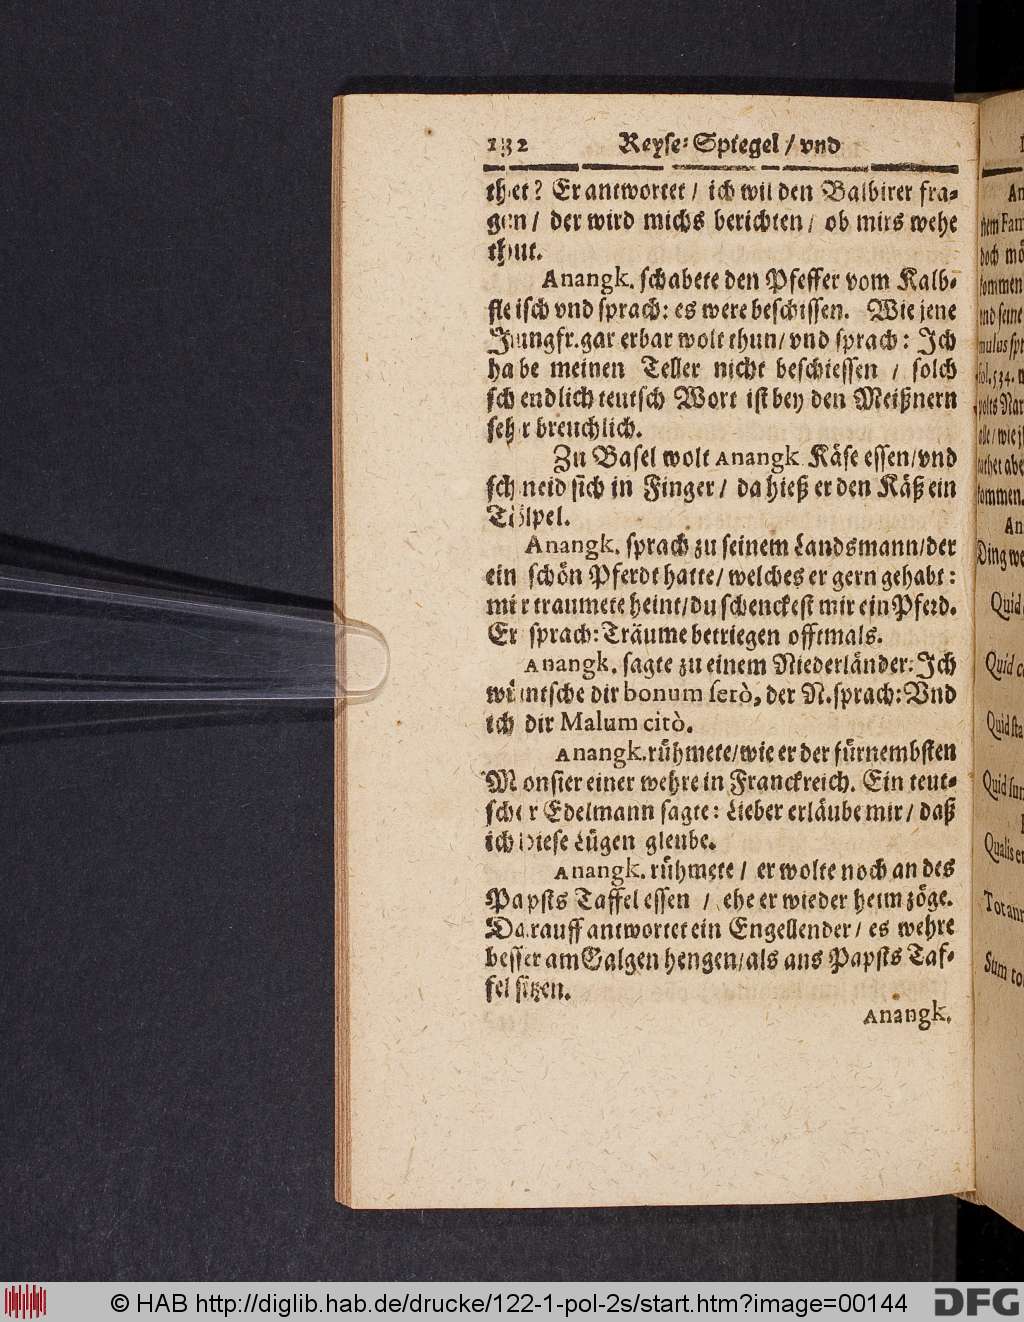 132 Reyse-Spiegel / vnd
thet? Er antwortet / ich wil den Balbirer fra-
gen / der wird michs berichten / ob mirs wehe
thut.
Anangk. schabete den Pfeffer vom Kalb-
fleisch vnd sprach: es were beschissen. Wie jene
Jungfr. gar erbar wolt thun / vnd sprach: Ich
habe meinen Teller nicht beschiessen / solch
schendlich teutsch Wort ist bey den Meißnern
sehr breuchlich.
Zu Basel wolt Anangk Käse essen / vnd
schneid sich in Finger / da hieß er den Käß ein
Tölpel.
Anangk. sprach zu seinem Landsmann / der
ein schön Pferdt hatte / welches er gern gehabt:
mir traumete heint / du schenckest mir ein Pferd.
Er sprach: Träume betriegen offtmals.
Anangk. sagte zu einem Niederländer: Ich
wüntsche dir bonum serò, der N. sprach: Vnd
ich dir Malum citò.
Anangk. rühmete / wie er der fürnembsten
Monsier einer wehre in Franckreich. Ein teut-
scher Edelmann sagte: Lieber erläube mir / daß
ich diese Lügen gleube.
Anangk. rühmete / er wolte noch an des
Papsts Taffel essen / ehe er wieder heim zöge.
Darauff antwortet ein Engellender / es wehre
besser am Galgen hengen / als ans Papsts Taf-
fel sitzen.
Anangk.
An
doch mö
kommen
vnd seine
fol. 534.
kommen.
An
Ding we
Quid
Quid
Quid sta
Quid
Qualis
Tot
Sum
© HAB http://diglib.hab.de/drucke/122-1-pol-2s/start.htm?image=00144
DFG